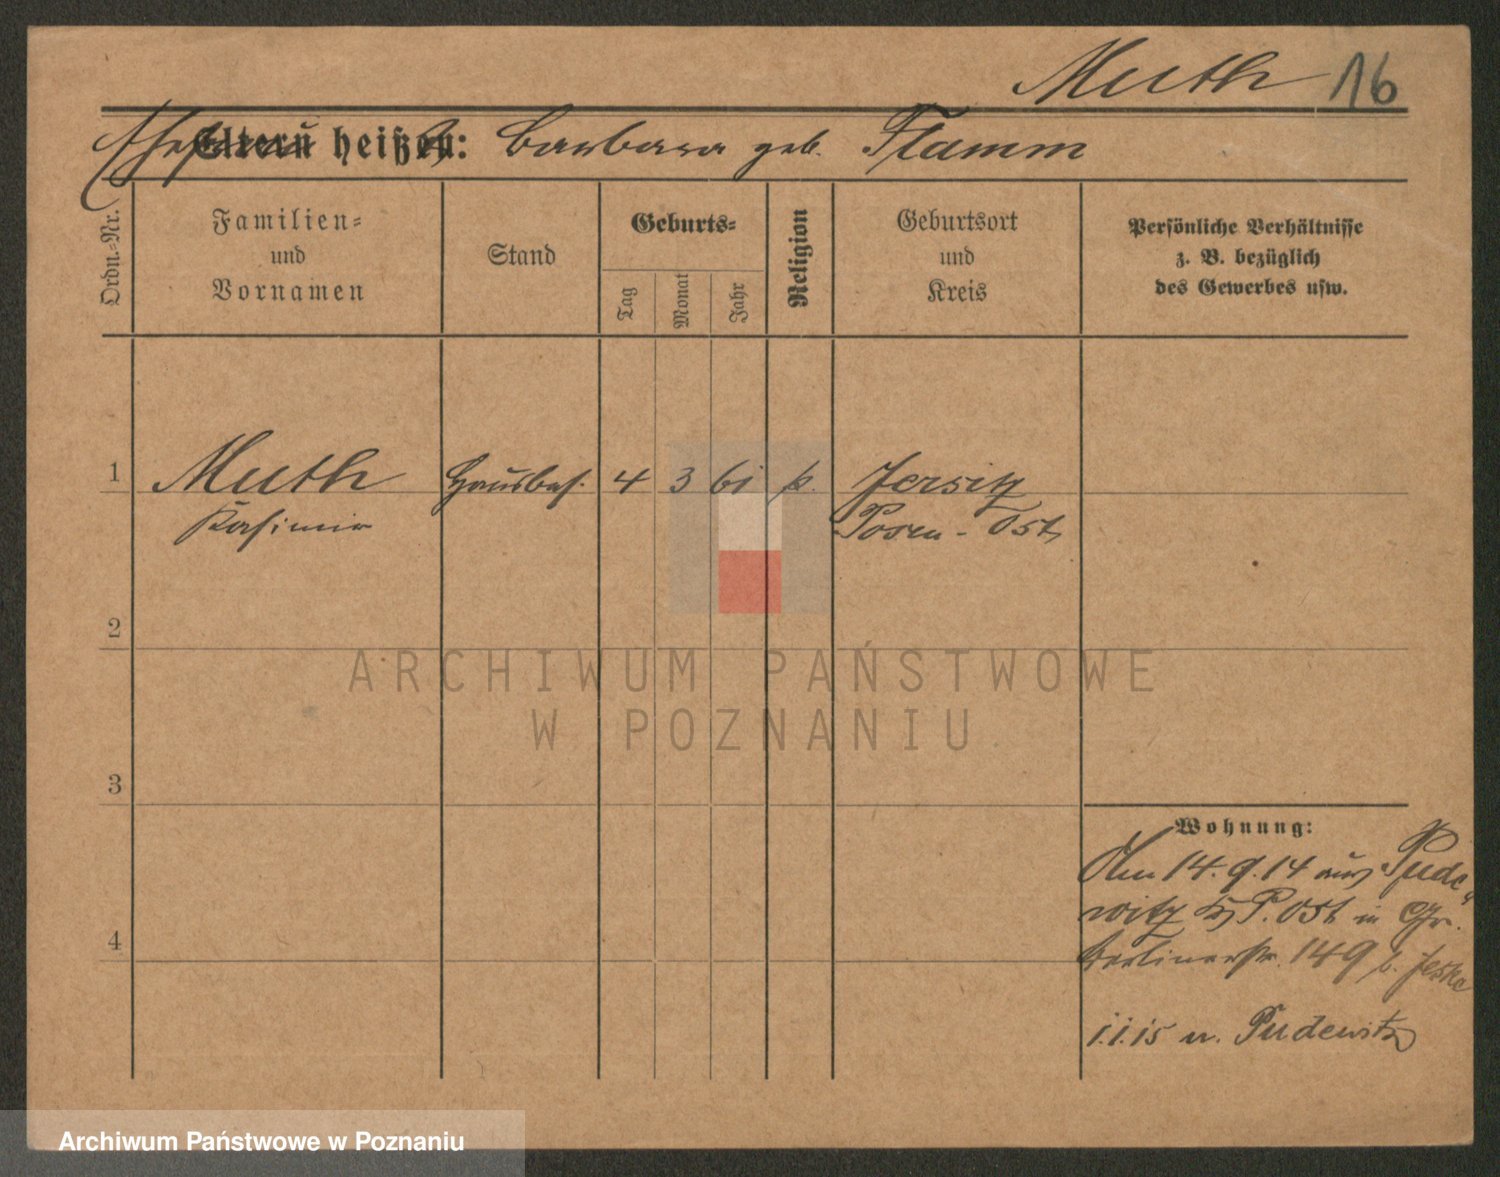 Muth 16
Eltern heißen: Barbara geb. Flamm
Ordn.-Nr.
Familien-
und
Vornamen
Stand
Geburts-
Tag
Monat
Jahr
Religion
Geburtsort
und
Kreis
Persönliche Verhältnisse
z. B. bezüglich
des Gewerbes usw.
1 Muth Hausbes. 4 3 61 k. Jersitz
Kasimir Posen-Ost
2
ARCHIWUM PAŃSTWOWE
W POZNANIU
3
Wohnung:
Am 14.9.14 aus Pude-
witz Kr P. Ost in Gr.
4
Berlinerstr. 149 b. Jeske
1.1.15 n. Pudewitz
Archiwum Państwowe w Poznaniu